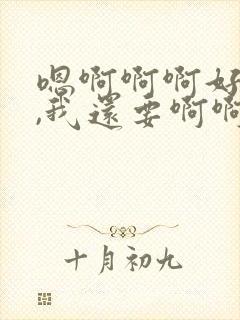 嗯啊啊啊好
,我还要啊啊
十月初九